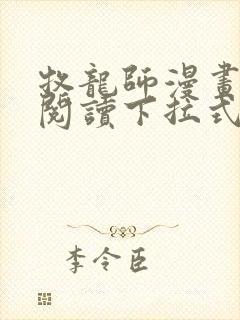 牧龍師漫畫
閱讀下拉式
李令臣